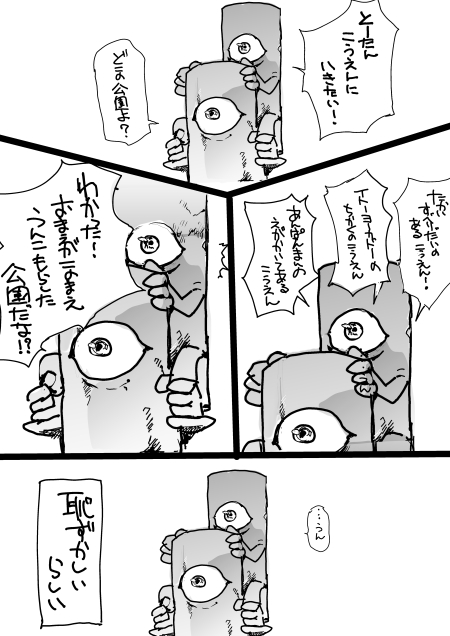 とーたん
こうえんに
いきたい！
どこの
公園よ？
でかい
すべりだいの
あるこうえん！
イトーヨーカドーの
ちかくのこうえん
あんぱんまんの
えがかいてある
こうえん
わかった！
おまえがこのまえ
うんこもらした
公園だな！？
…うん
恥ずかしい
らしい